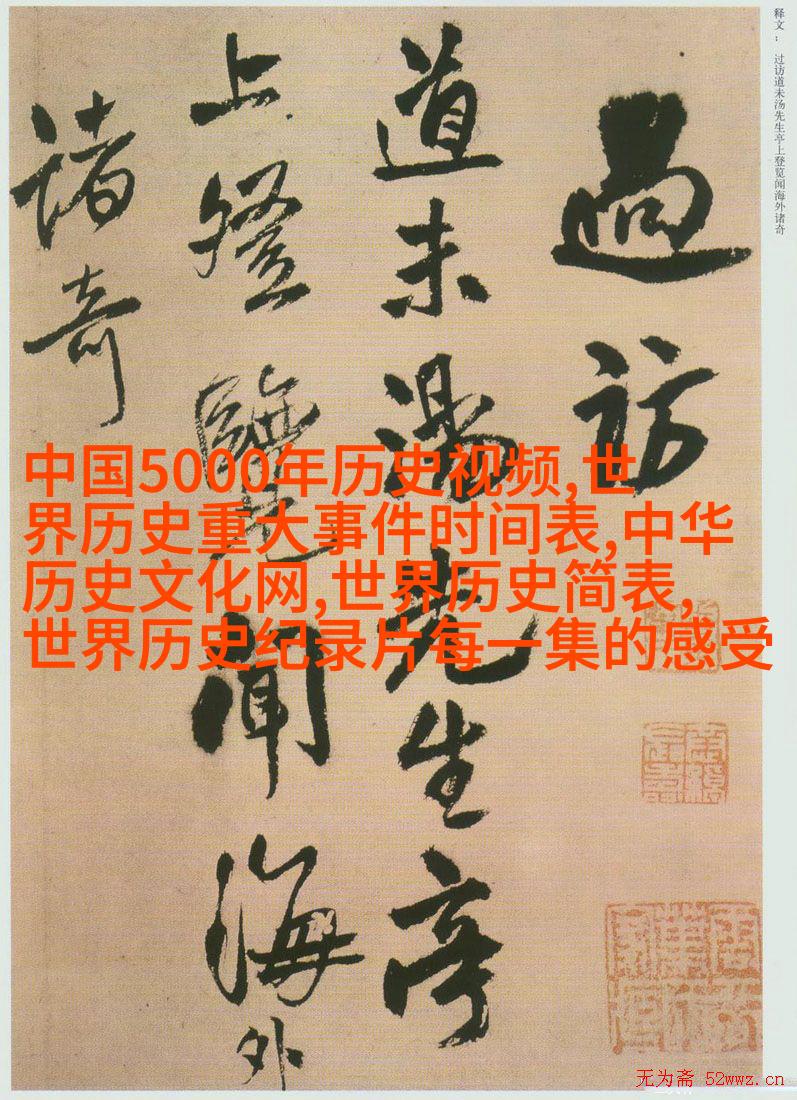 释文： 过访道未汤先生亭上登览闻海外诸奇
過訪
道未湯先生亭
上登覽聞海外
諸奇
中国5000年历史视频,世
界历史重大事件时间表,中华
历史文化网,世界历史简表,
世界历史纪录片每一集的感受
无为斋 52wwz.cn